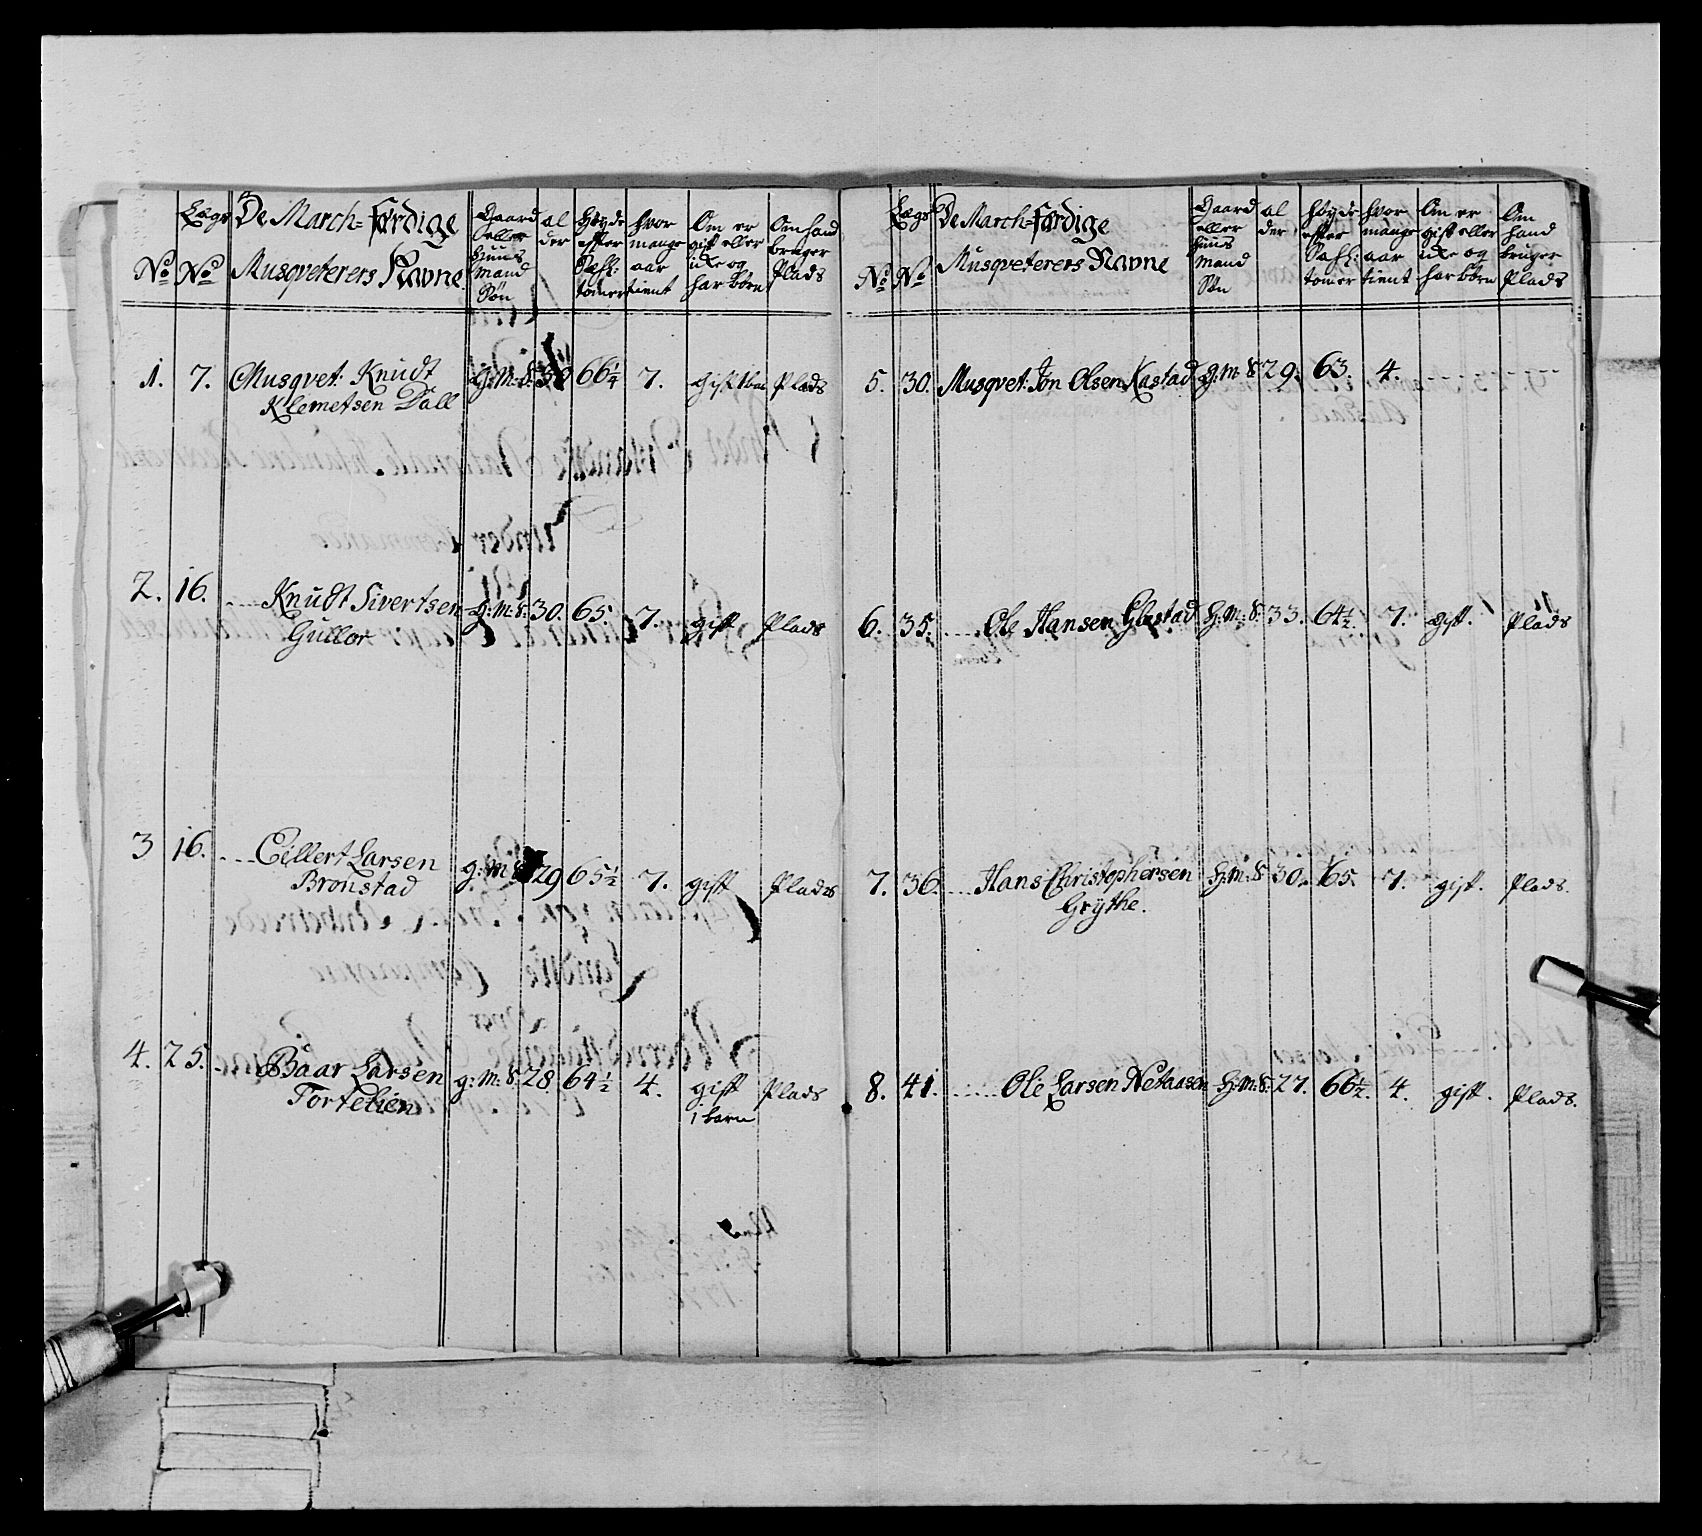 Lægs De March-Færdige Gaard al Høyde hvor Om er Om hand
eller der efter mange gift eller bruger
Huus Sæhl: aar icke og Plads
No No Musqveterers Navne mand tommer tient har børn
Søn
1. 7. Musqvet. Knudt G:M:S: 66¼ 7. gift 1 bar Plads
Klemetsen Dall
2. 16. Knudt Sivertsen g:M:S: 30. 65. 7. gift Plads
Gullor
3 16. Eillert Larsen g:M:S 29 65½ 7. gift Plads
Bronstad
4. 25. Baar Larsen g:M:S. 28. 64½ 4. gift Plads
Tortelien 1 barn
Lægs De March-Færdige Gaard al Høyde hvor Om er Om
eller der efter mange gift eller hand
huus Sæhl: aar icke og bruger
No No Musqveterers Navne mand tommer tient har børn Plads
Søn
5. 30. Musqvet. Jon Olsen Kastad g:m:S 29. 63. 4.
6. 35. Ole Hansen Glestad H:M:S 33. 64½ 7. gift. Plads
7. 36. Hans Christophersen H:M:S 30. 65. 7. gift. Plads.
Grythe.
8. 41. Ole Larsen Netaasen H:M:S: 27. 66½. 4. gift. Plads.